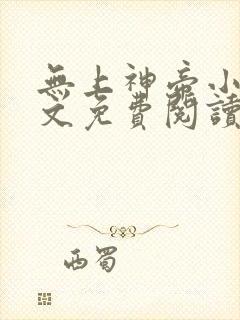 無上神帝小
文免費閱讀
西蜀